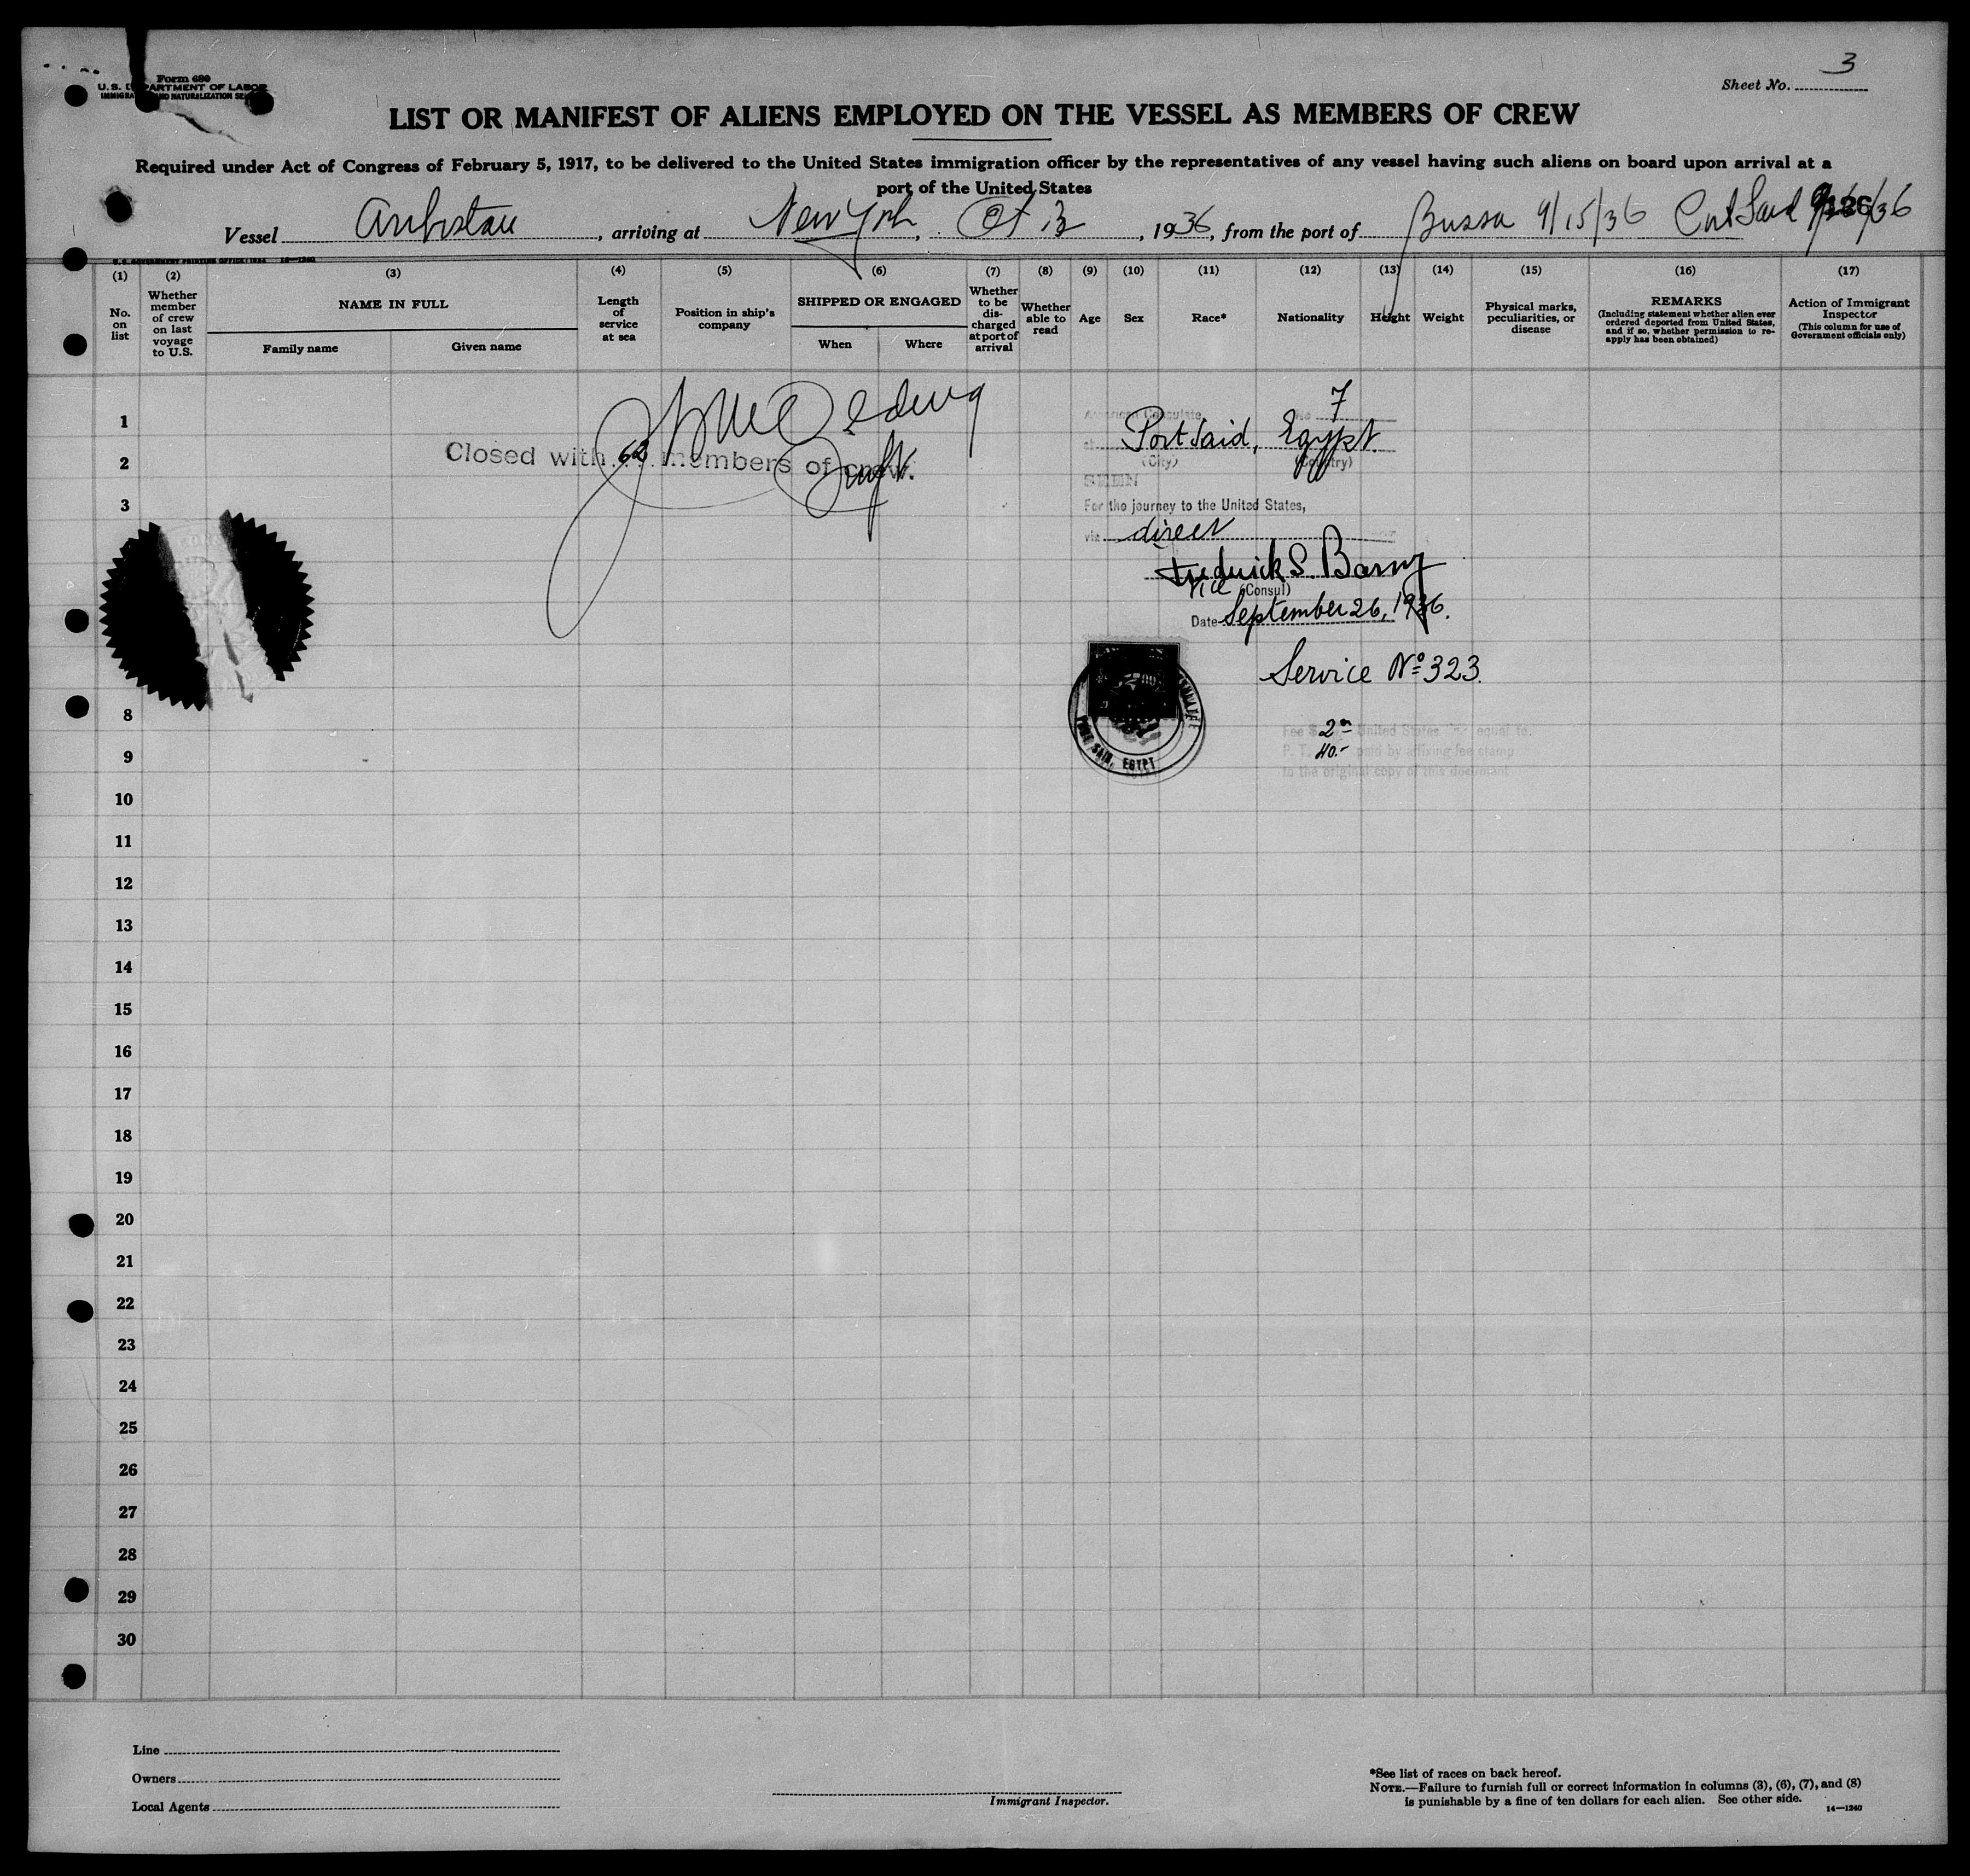 Form 680
U.S. DEPARTMENT OF LABOR
IMMIGRATION AND NATURALIZATION SERVICE
Sheet No. 3
LIST OR MANIFEST OF ALIENS EMPLOYED ON THE VESSEL AS MEMBERS OF CREW
Required under Act of Congress of February 5, 1917, to be delivered to the United States immigration officer by the representatives of any vessel having such aliens on board upon arrival at a
port of the United States
Vessel Arabistan, arriving at New York, Oct 13, 1936, from the port of Bussa 9/15/36 Port Said 9/26/36
U.S. GOVERNMENT PRINTING OFFICE: 1934 14—1240
(1) (2) (3) (4) (5) (6) (7) (8) (9) (10) (11) (12) (13) (14) (15) (16) (17)
No. on list
Whether member of crew on last voyage to U.S.
NAME IN FULL
Family name
Given name
Length of service at sea
Position in ship's company
SHIPPED OR ENGAGED
When
Where
Whether to be discharged at port of arrival
Whether able to read
Age
Sex
Race*
Nationality
Height
Weight
Physical marks, peculiarities, or disease
REMARKS
(Including statement whether alien ever ordered deported from United States, and if so, whether permission to reapply has been obtained)
Action of Immigrant Inspector
(This column for use of Government officials only)
1
2
3
8
9
10
11
12
13
14
15
16
17
18
19
20
21
22
23
24
25
26
27
28
29
30
Closed with 62 members of crew.
American Consulate No 7
at Port Said, Egypt.
(City) (Country)
SEEN
For the journey to the United States,
via direct
Frederick S. Barny
Vice (Consul)
Date September 26, 1936.
Service Nº 323.
PORT SAID, EGYPT
Fee $ 2.- United States equal to.
P. T. 40.- paid by affixing fee stamp
to the original copy of this document
Line
Owners
Local Agents
Immigrant Inspector.
*See list of races on back hereof.
NOTE.—Failure to furnish full or correct information in columns (3), (6), (7), and (8)
is punishable by a fine of ten dollars for each alien. See other side.
14—1240